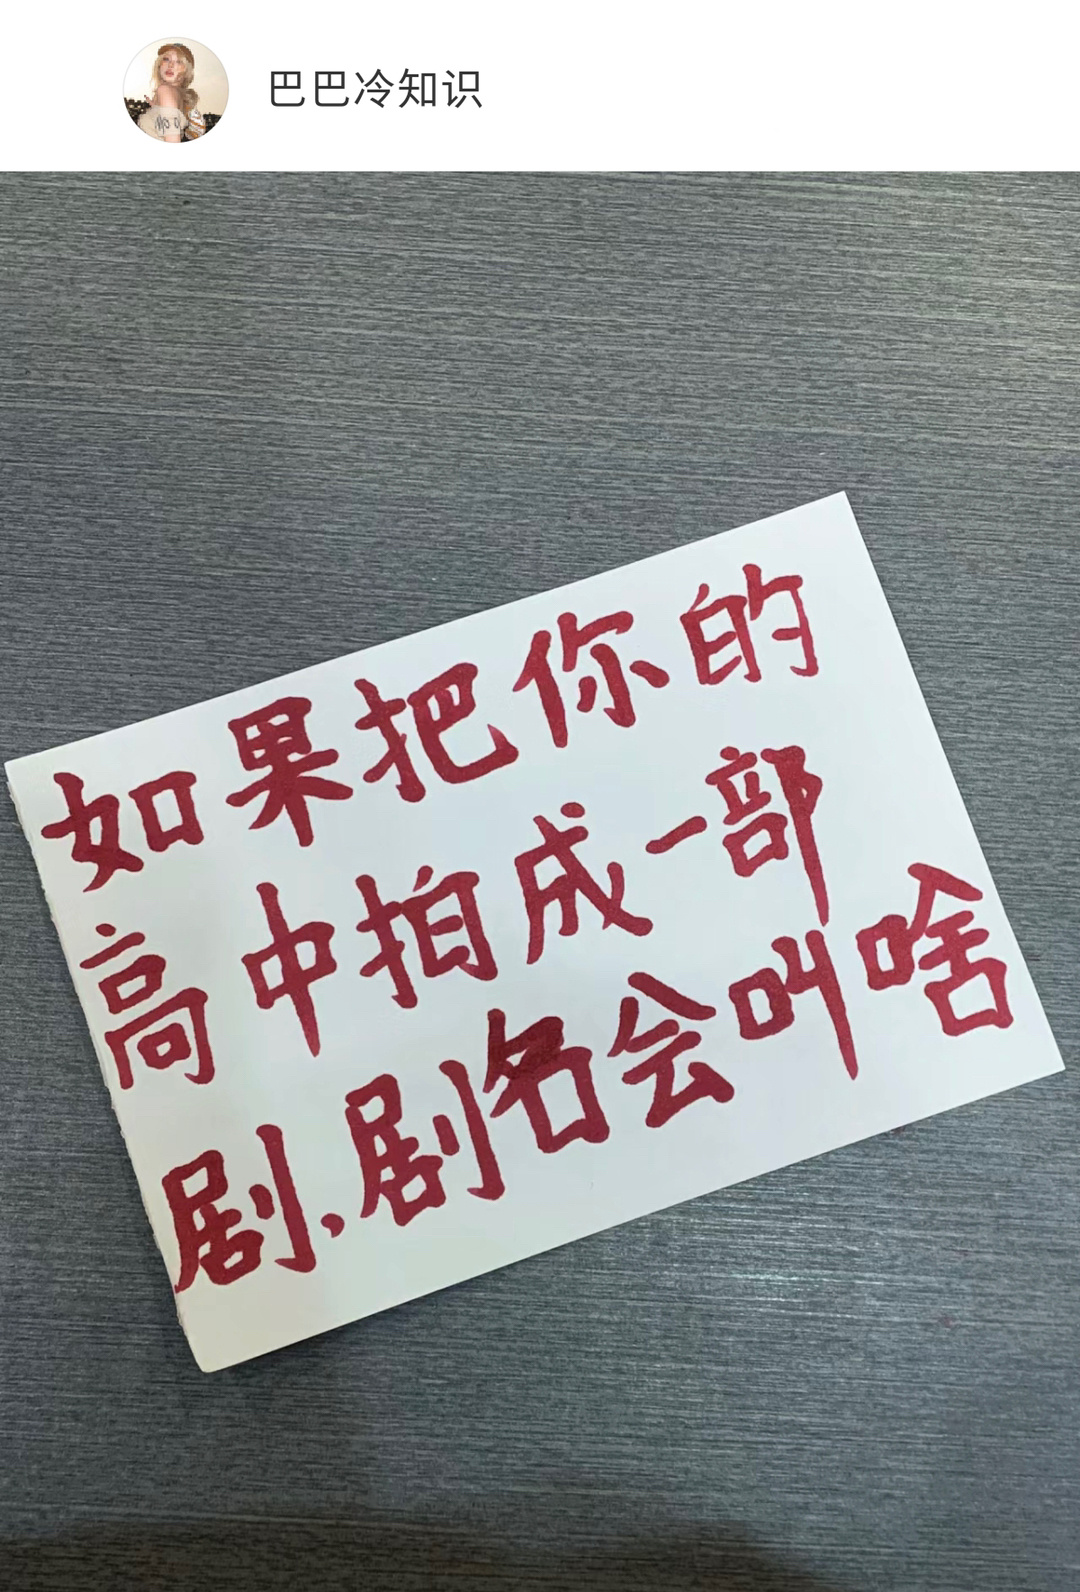 巴巴冷知识
如果把你的
高中拍成一部
剧,剧名会叫啥